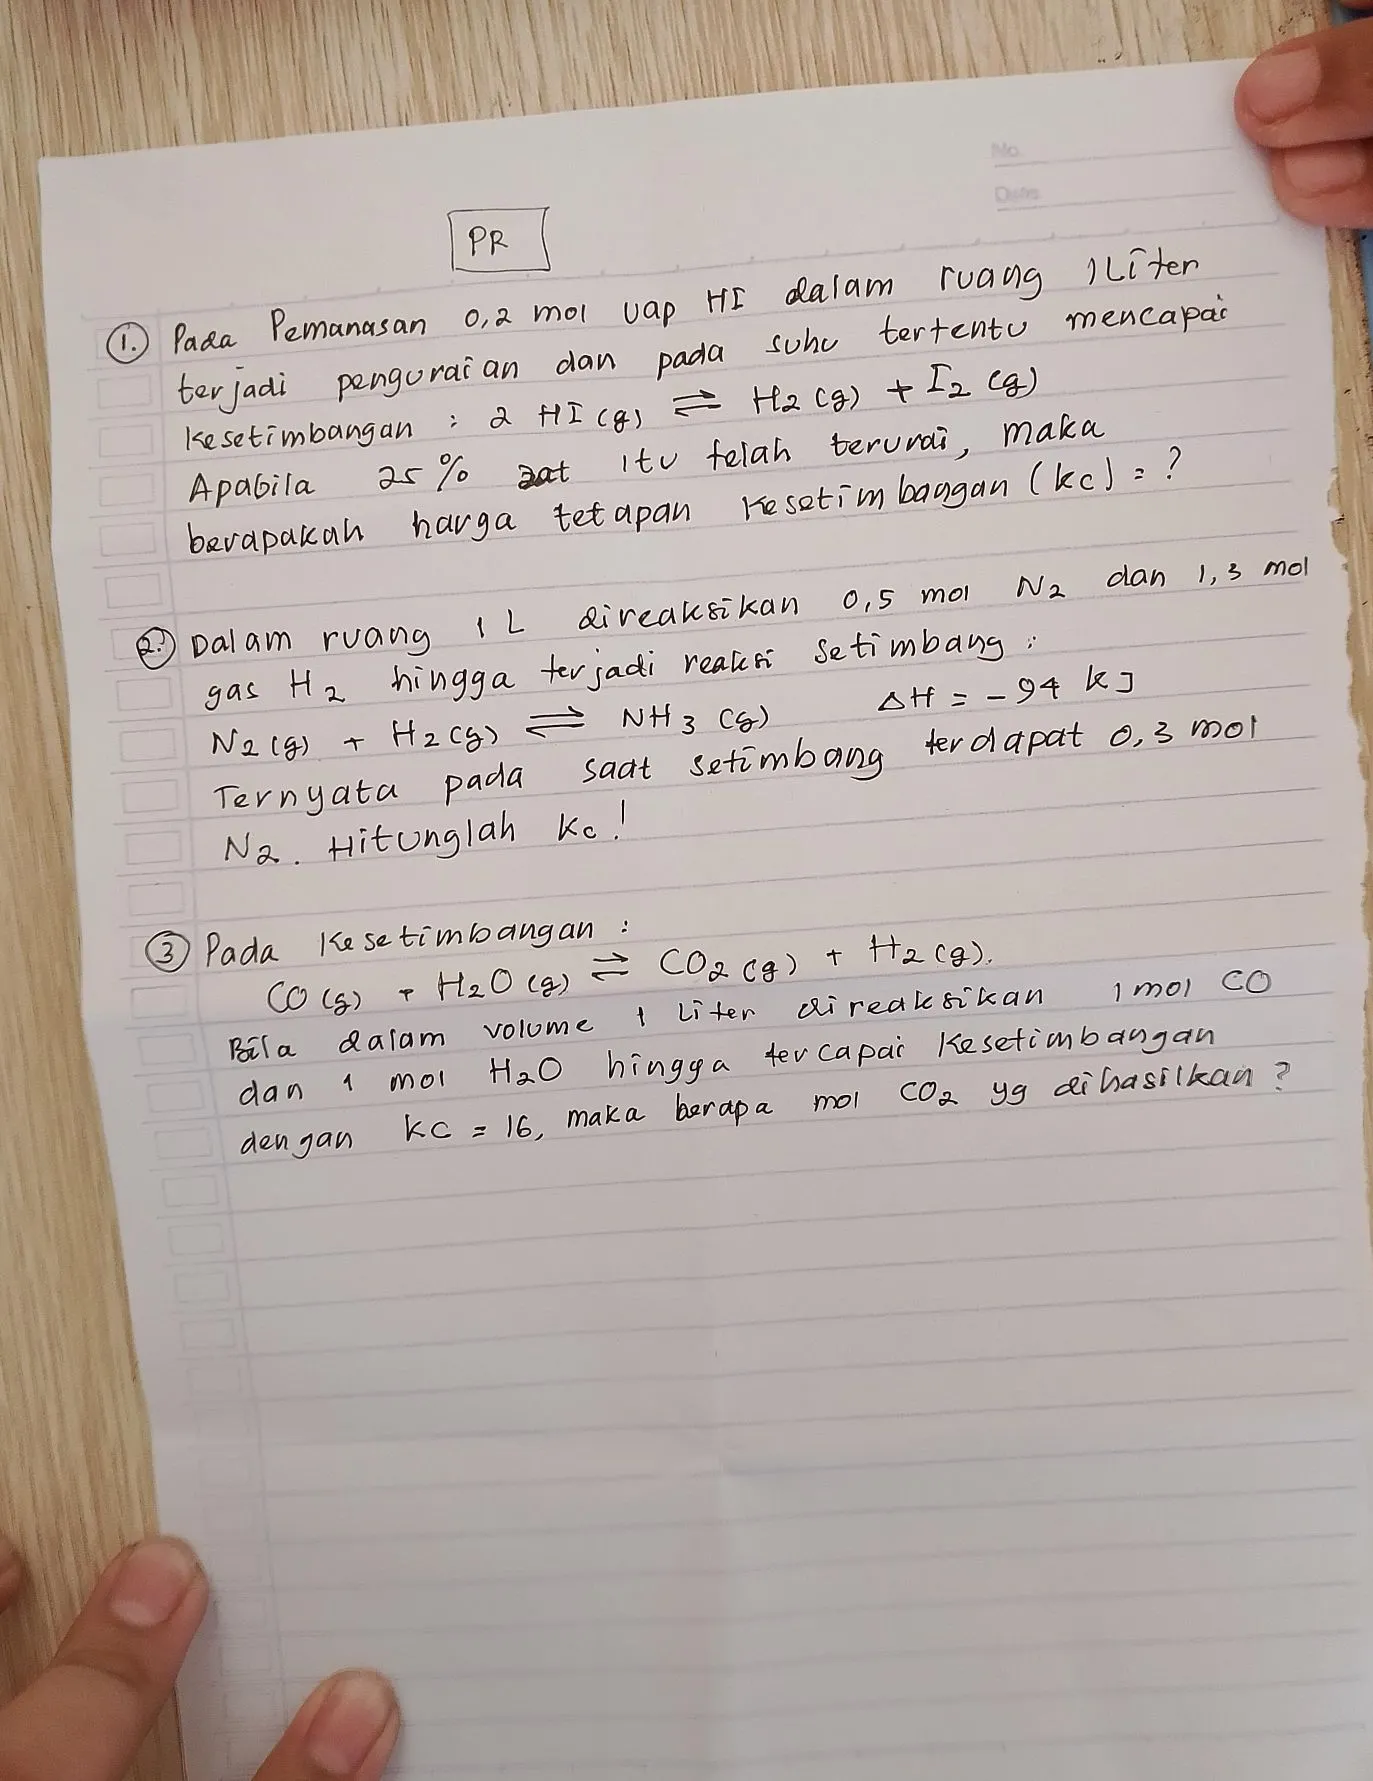 No.
Date
PR
1. Pada Pemanasan 0,2 mol uap HI dalam ruang 1 Liter
terjadi penguraian dan pada suhu tertentu mencapai
Kesetimbangan : 2 HI (g) ⇌ H2 (g) + I2 (g)
Apabila 25 % zat itu telah terurai, maka
berapakah harga tetapan Kesetimbangan (kc) = ?
2. Dalam ruang 1 L direaksikan 0,5 mol N2 dan 1,3 mol
gas H2 hingga terjadi reaksi setimbang :
N2 (g) + H2 (g) ⇌ NH3 (g) ΔH = -94 kJ
Ternyata pada saat setimbang terdapat 0,3 mol
N2. Hitunglah Kc !
3 Pada Kesetimbangan :
CO (g) + H2O (g) ⇌ CO2 (g) + H2 (g).
Bila dalam volume 1 Liter direaksikan 1 mol CO
dan 1 mol H2O hingga tercapai Kesetimbangan
dengan KC = 16, maka berapa mol CO2 yg dihasilkan ?